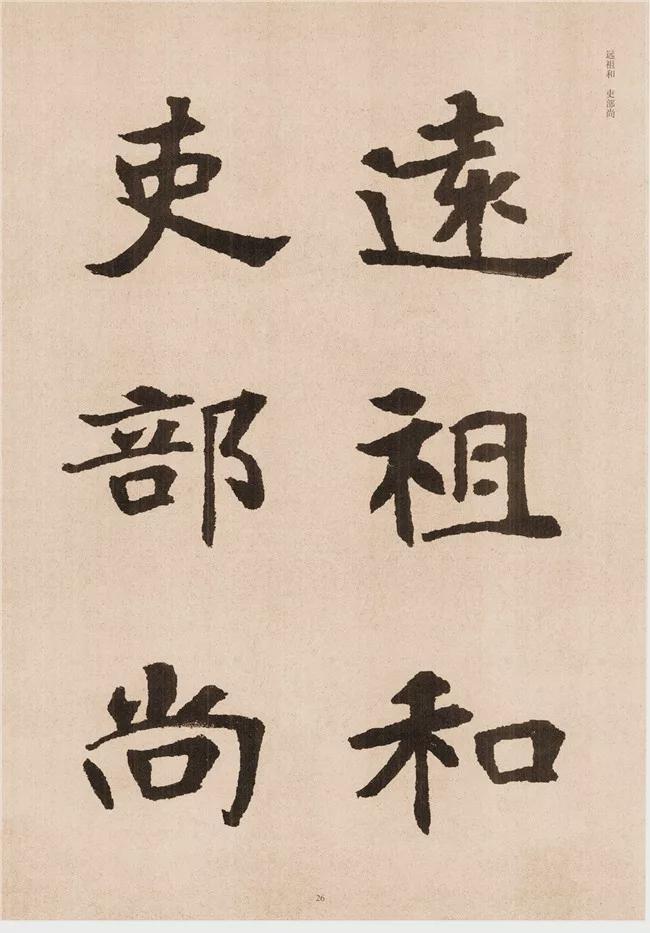 远祖和　吏部尚
遠祖和
吏部尚
26